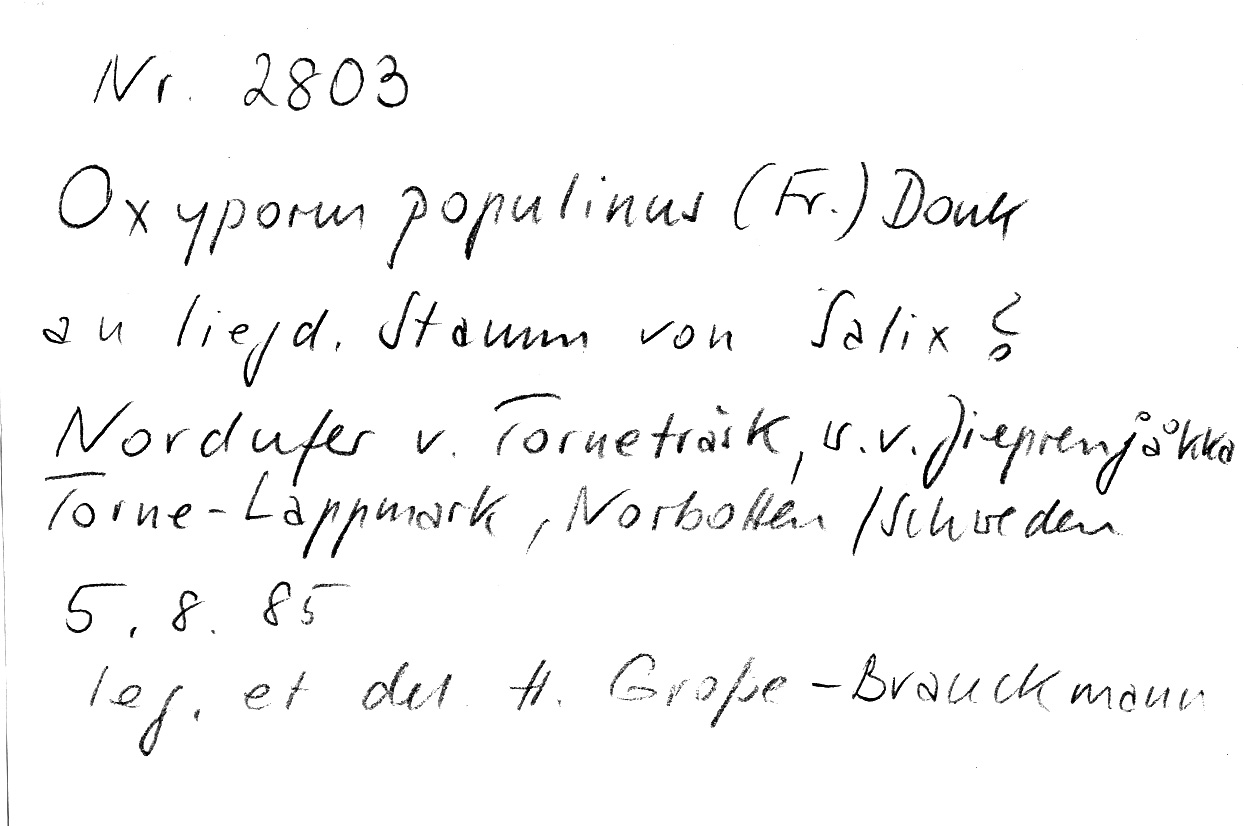 Nr. 2803
Oxyporus populinus (Fr.) Donk
an liegd. Stamm von Salix ?
Nordufer v. Torneträsk, v.
Torne-Lappmark, Norbotten / Schweden
5. 8. 85
leg. et det. H. Große-Brauckmann